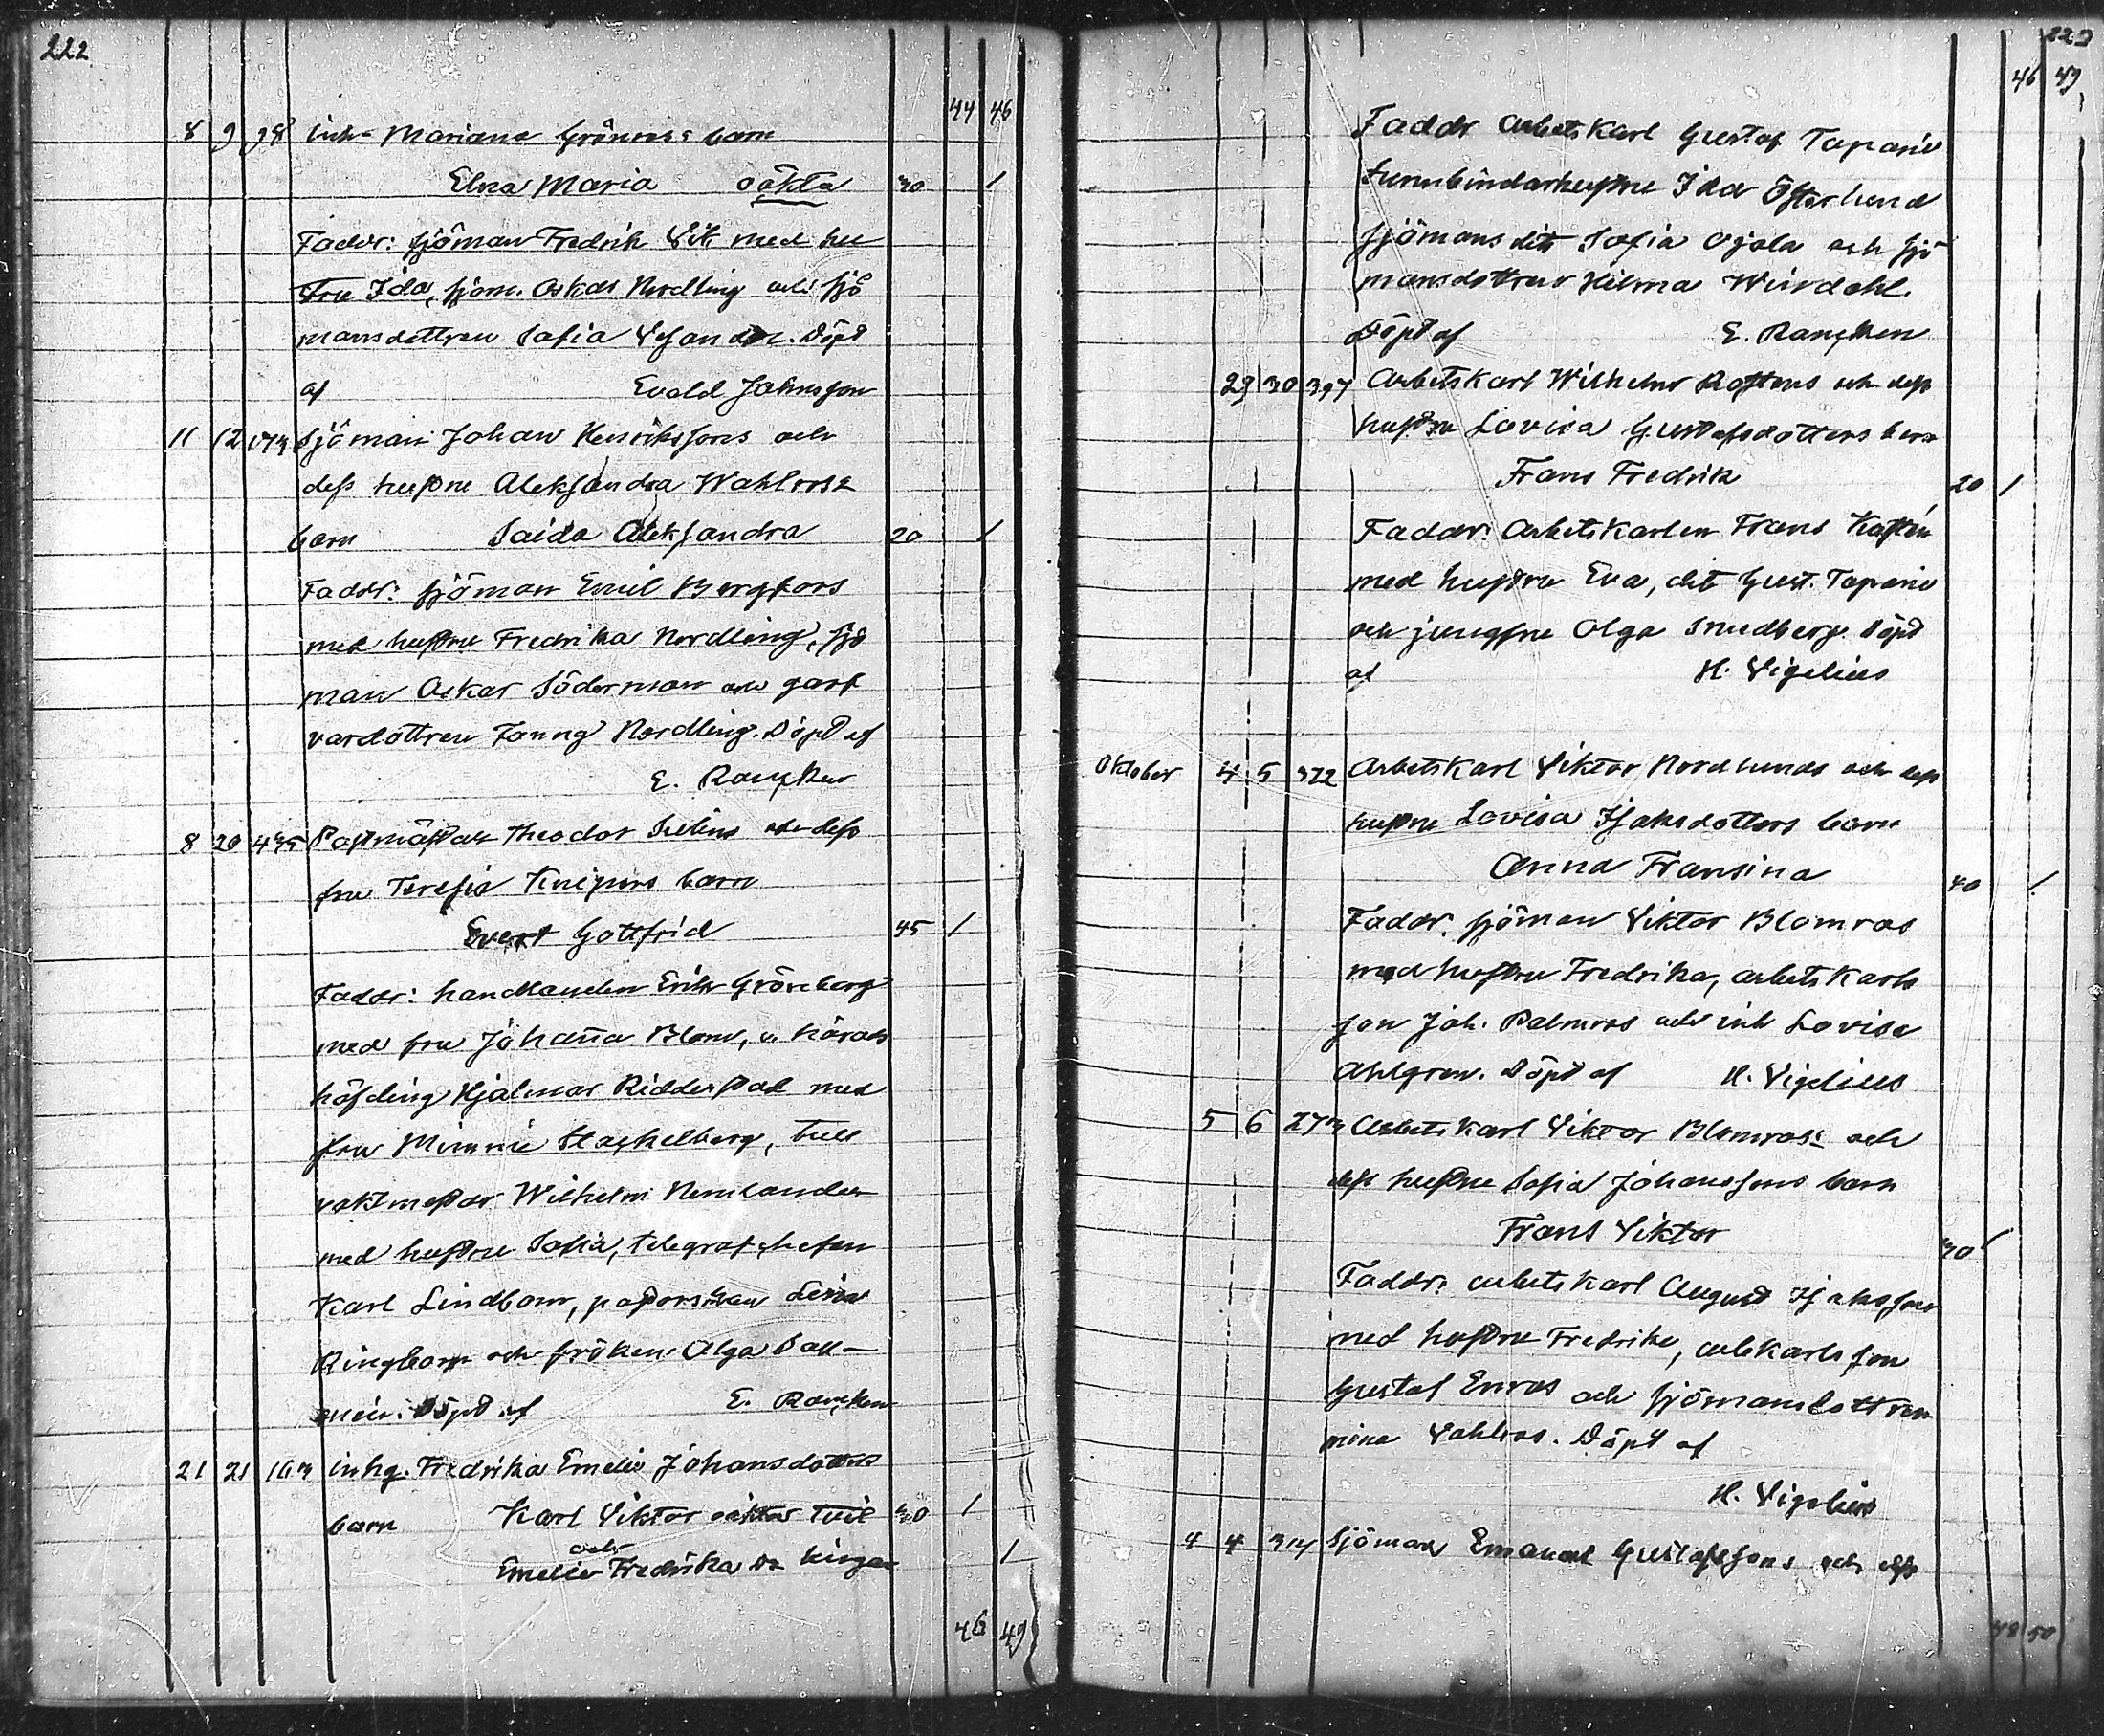 222
44 46
8 9 98 inh. Mariana Grönroos: barn
Elna Maria oäkta 30 1
Faddr: sjöman Fredrik Vik med hu
stru Ida, sjöm. Oskar Nordling och sjö
mansdottren Sofia Defander. Döpt
af Evald Johnsson
11 12 173 Sjöman Johan Henrikssons och
dess hustru Aleksandra Wahlroos
barn Saida Aleksandra 20 1
Faddr: sjöman Emil Bergfors
med hustru Fredrika Nordling, sjö
man Oskar Söderman och garf
vardottren Fanny Nordling. Döpt af
E. Rancken
8 20 435 Postmästar Theodor Selins och dess
fru Teresia Kneipers barn
Evert Gottfrid 45 1
Faddr: handlanden Erik Grönberg
med fru Johanna Blom, v. härads
höfding Hjalmar Ridderstad med
fru Mimmi Stackelberg, tull
vaktmestar Wilhelm Nemlander
med hustru Sofia, telegrafchefen
Karl Lindbom, pastorskan
Ringbom och fröken Olga Dall-
mein. Döpt af E. Rancken
21 21 163 inhg. Fredrika Emelie Johansdotters
barn Karl Viktor oäkta tvil 30 1
och
Emelie Fredrika Do lingar 1
46 49
223
46 49
Faddr arbetskarl Gustaf Tapanio
tunnbindarhustru Ida Österlund
sjömans dtt Sofia Ojala och sjö
mansdottren Hilma Windahl.
Döpt af E. Rancken
29 30 397 Arbetskarl Wilhelm Rostens och dess
hustru Lovisa Gustafsdotters barn
Frans Fredrik 20 1
Faddr: Arbetskarlen Frans Kastén
med hustru Eva, dito Gust. Tapanio
och jungfru Olga Smedberg. Döpt
af H. Vigelius
Oktober 4 5 372 Arbetskarl Viktor Nordlunds och dess
hustru Lovisa Isaksdotters barn
Anna Fransina 40 1
Faddr. sjöman Viktor Blomroos
med hustru Fredrika, arbetskarls
son Joh. Palmroos och inh Lovisa
Ahlgren. Döpt af H. Vigelius
5 6 273 Arbetskarl Viktor Blomroos: och
dess hustru Sofia Johanssons barn
Frans Viktor 30 1
Faddr: arbetskarl August Isaksson
med hustru Fredrika, arbkarlsson
Gustaf Enroos och sjömansdottren
Mina Vahlroos. Döpt af
H. Vigelius
4 4 314 Sjöman Emanuel Gustafssons och dess
48 50